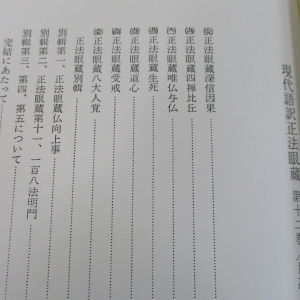 現代語訳正法眼蔵 第十二巻
正法眼蔵深信因果
正法眼蔵四禅比丘
正法眼蔵唯仏与仏
正法眼蔵生死
正法眼蔵道心
正法眼蔵受戒
正法眼蔵八大人覚
正法眼蔵別輯
別輯第一、正法眼蔵仏向上事
別輯第二、正法眼蔵第十一、一百八法明門
別輯第三、第四、第五について
完結にあたって